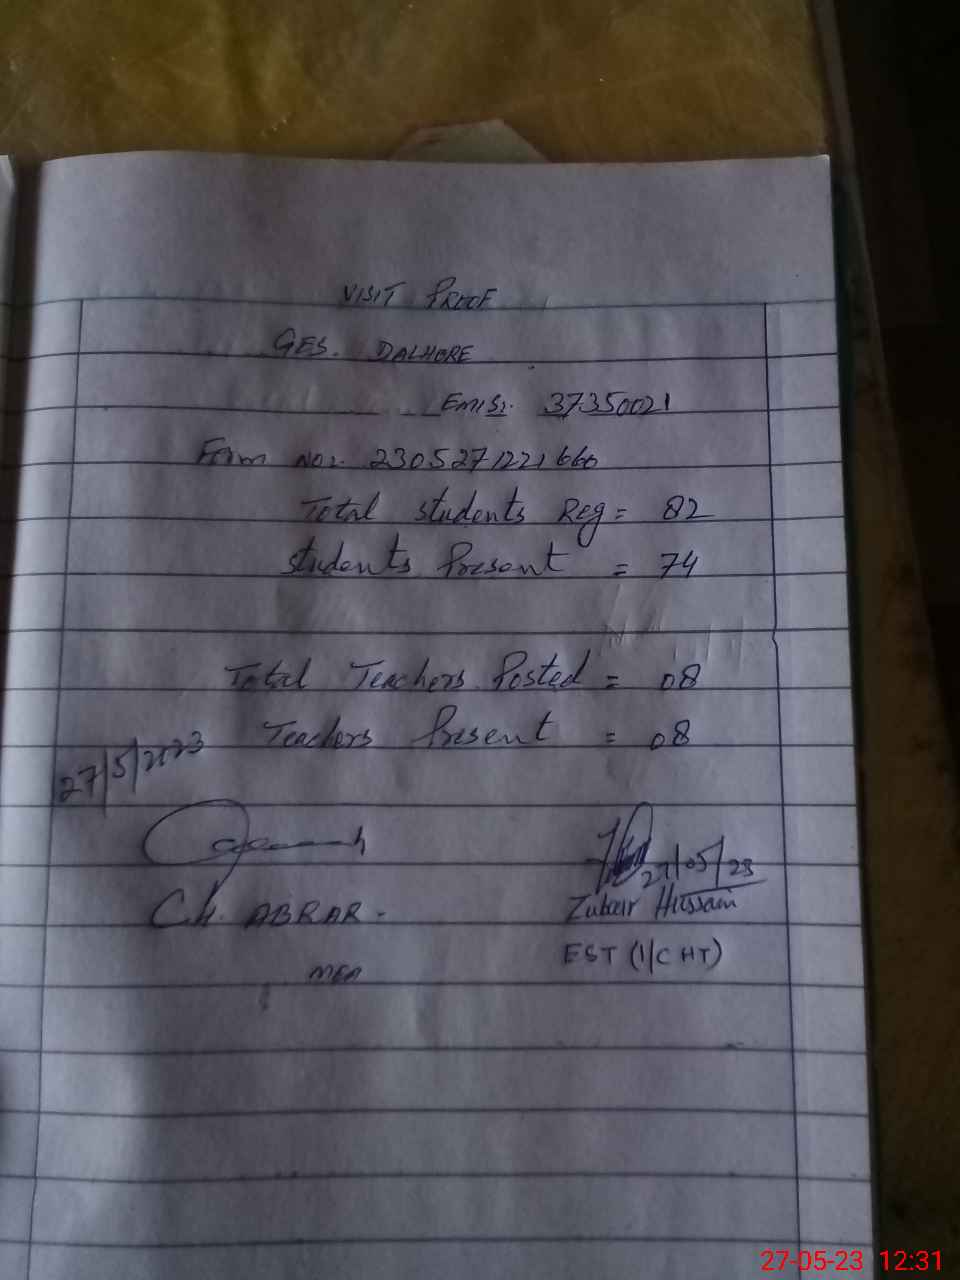 VISIT PROOF
GES. DALHORE
EMIS:. 37350021
Form NO:. 2305271221660
Total students Reg = 82
students Present = 74
Total Teachers Posted = 08
Teachers Present = 08
27/5/2023
27/05/23
CH. ABRAR.
Zubair Hussain
MEA
EST (I/C HT)
27-05-23 12:31